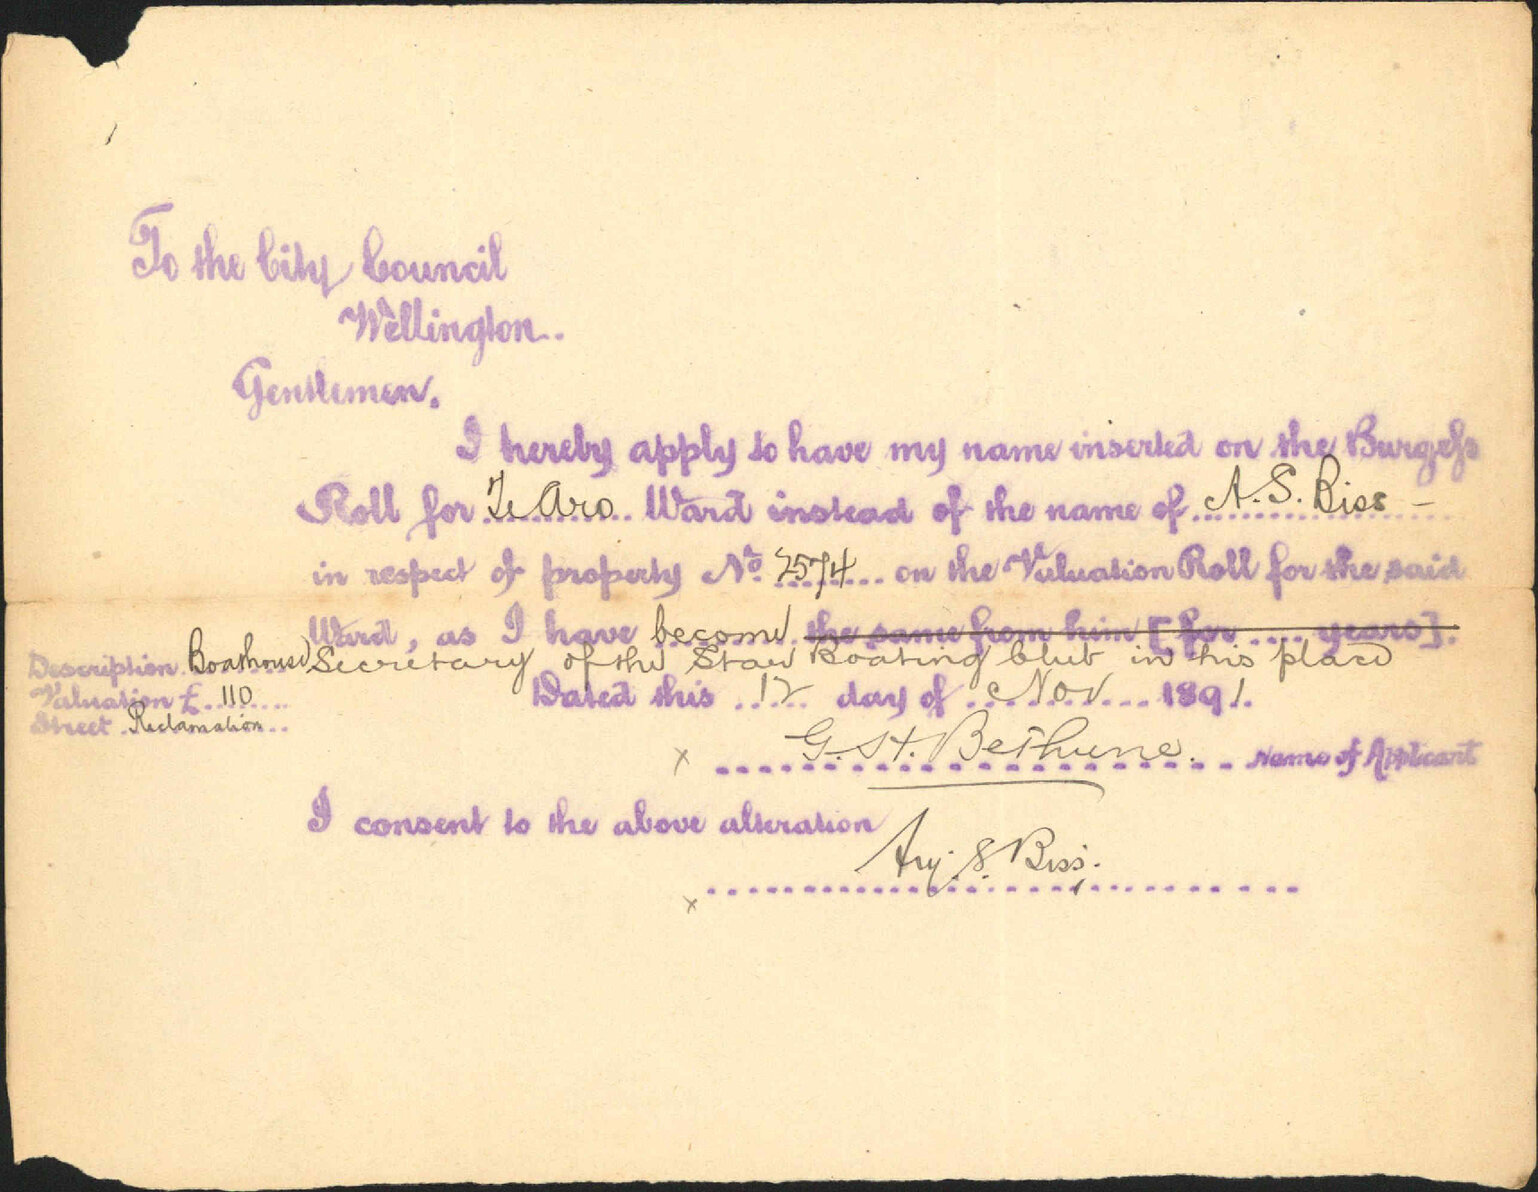 To the City Council
Wellington..
Gentlemen.
I hereby apply to have my name inserted on the Burgess
Roll for Te Aro Ward instead of the name of A. S. Biss –
in respect of property No. 2574 on the Valuation Roll for the said
Ward, as I have become the same from him [for .... years].
Description Boathouse Secretary of the Star Boating Club in his place
Valuation £ 110 Dated this 12 day of Nov 1891.
Street Reclamation
x G. St. Bethune. Name of Applicant
I consent to the above alteration
S. Biss.
x